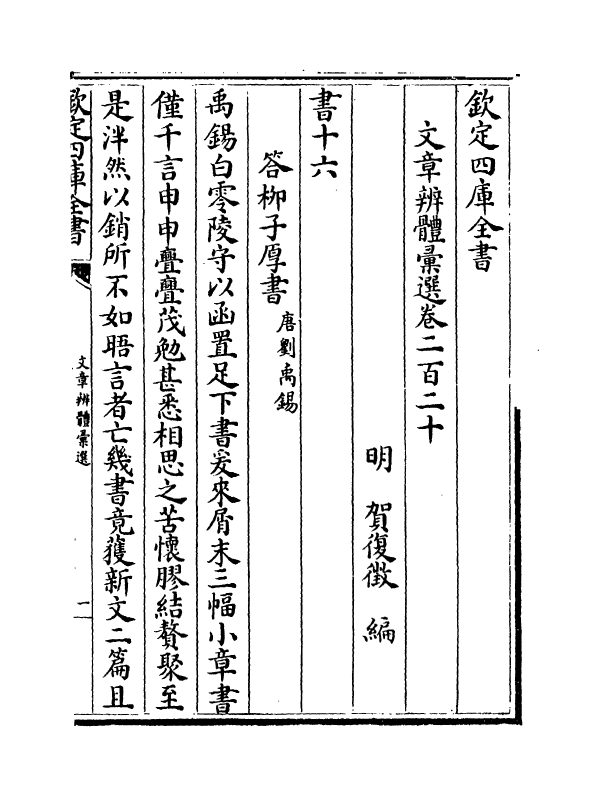 欽定四庫全書
文章辨體彙選卷二百二十
明 賀復徵 編
書十六
答柳子厚書 唐劉禹錫
禹錫白零陵守以函置足下書爰來屑末三幅小章書
僅千言申申亹亹茂勉甚悉相思之苦懷膠結贅聚至
是泮然以銷所不如晤言者亡幾書竟獲新文二篇且
欽定四庫全書
文章辨體彙選
一